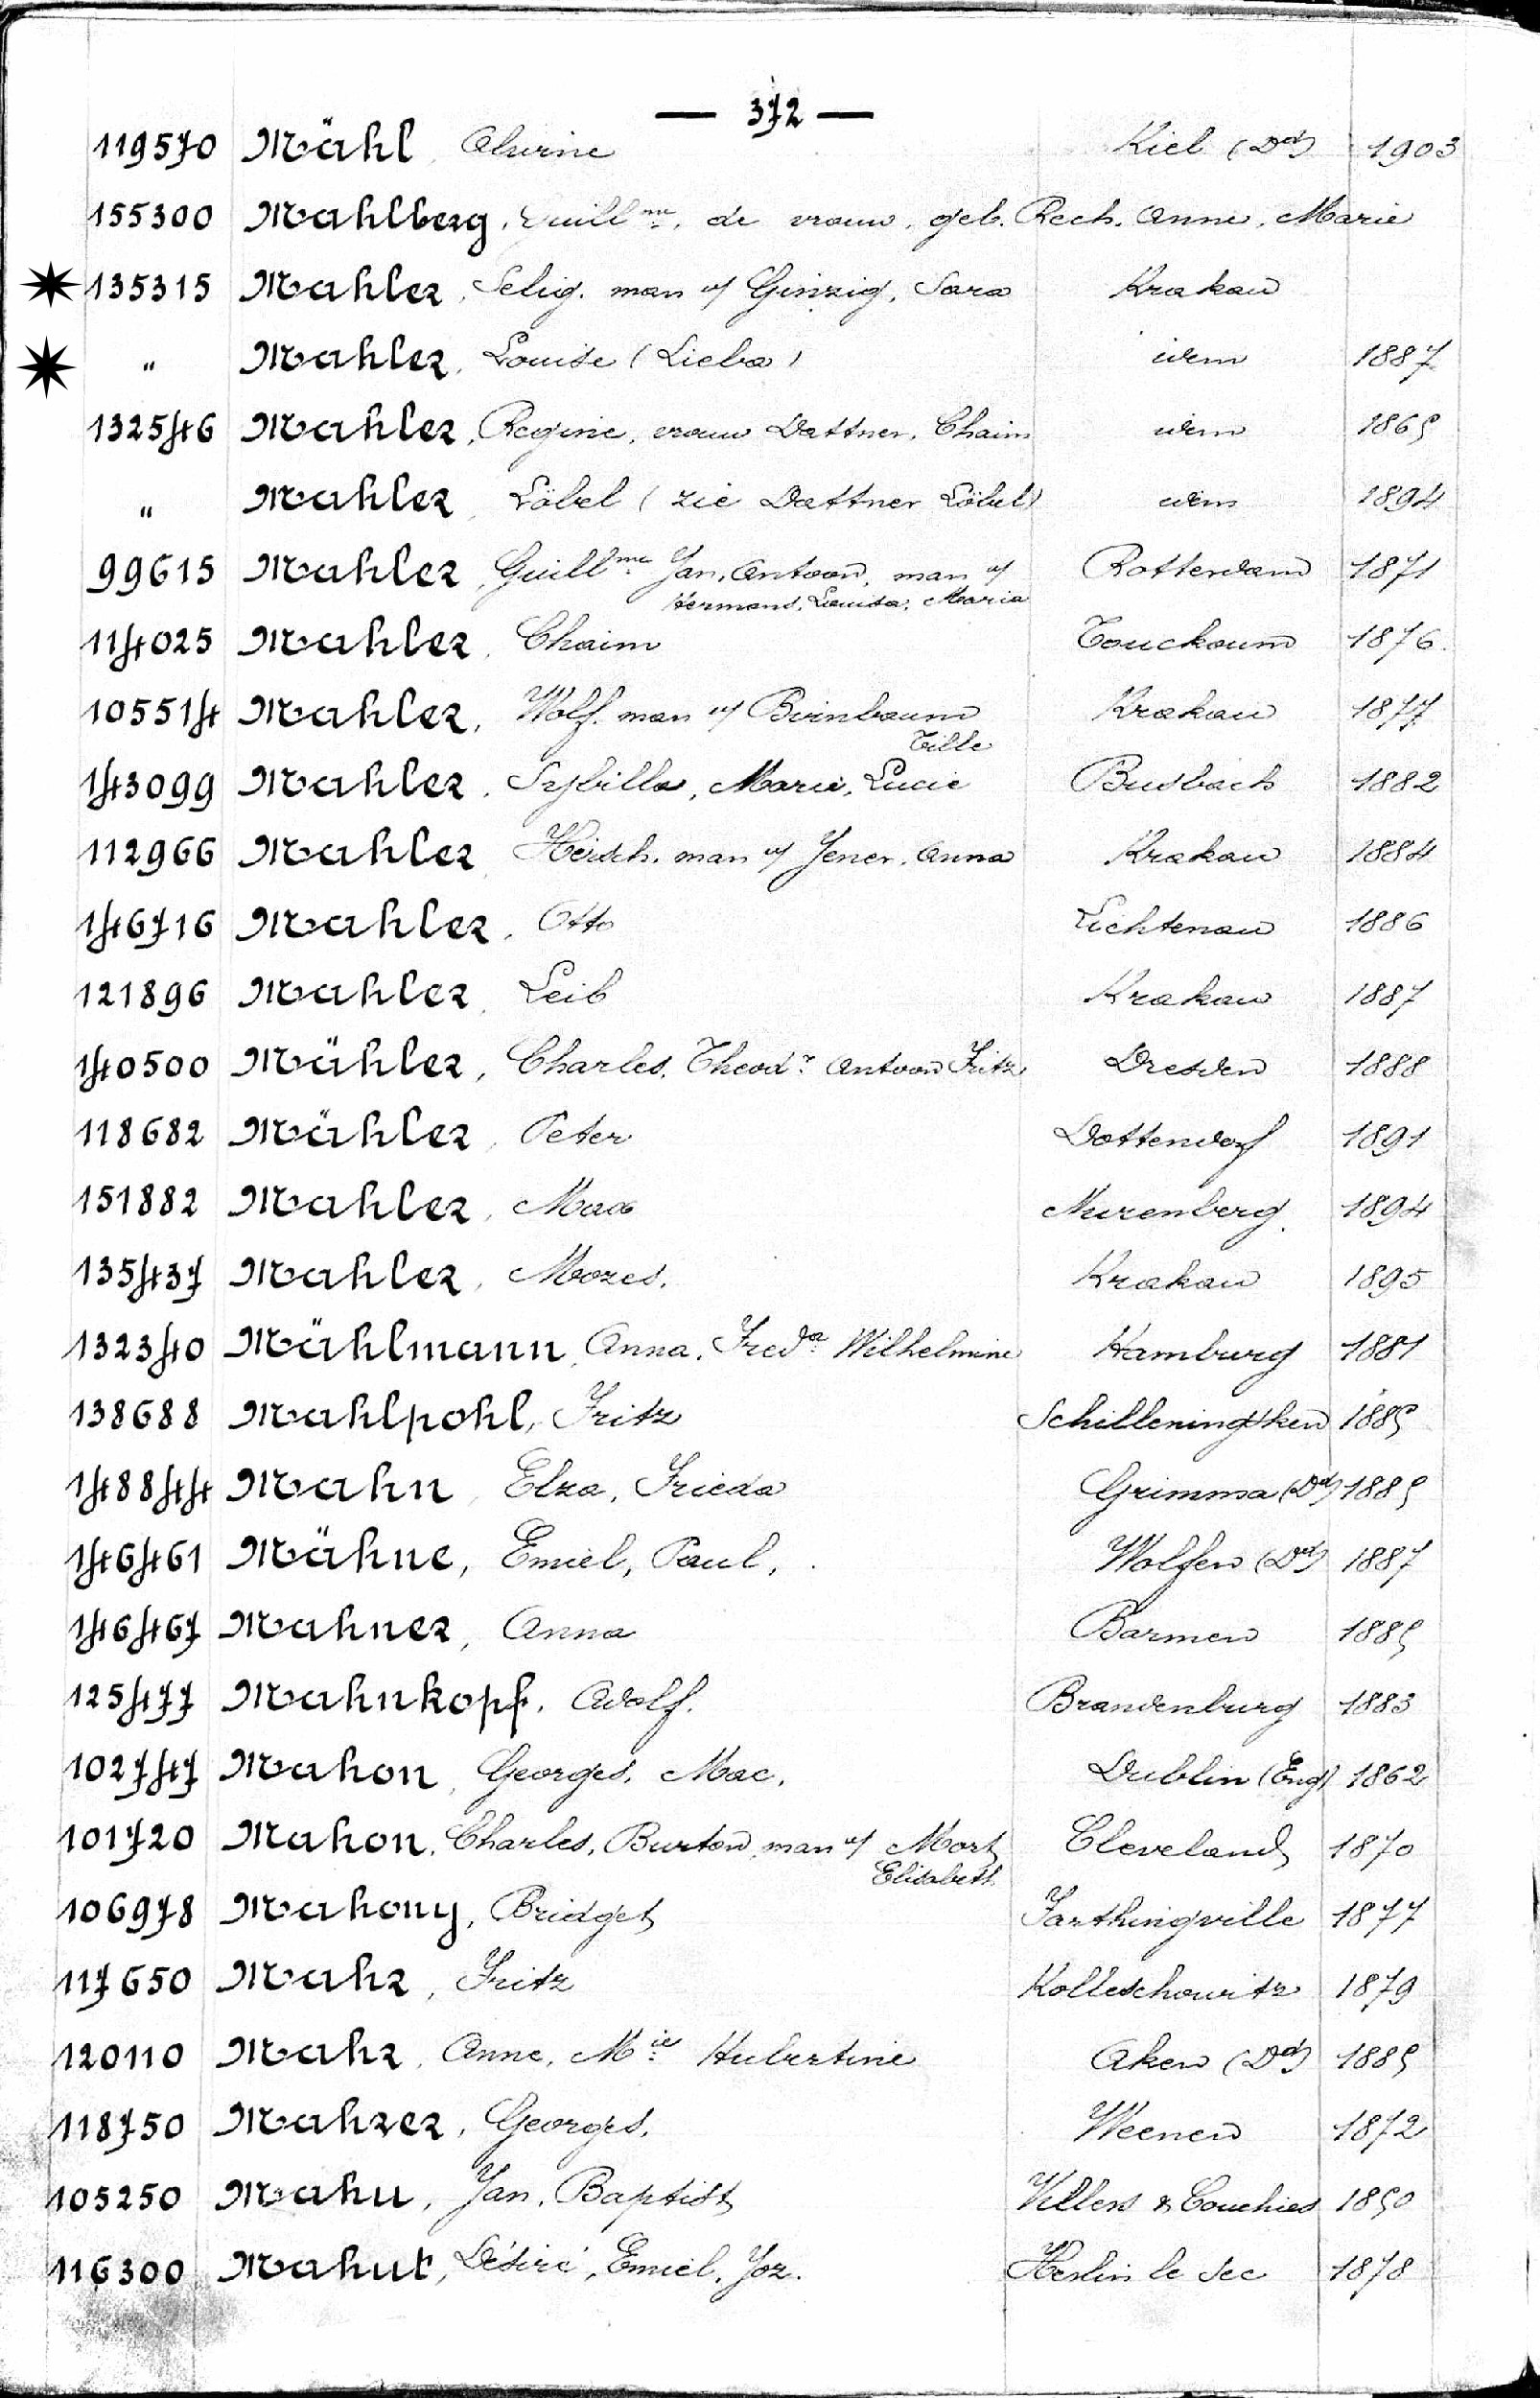 — 372 —
119570 Mähl, Alwine Kiel (Dd) 1903
155300 Mahlberg, Guillme, de vrouw, geb. Rech. Anne, Marie
135315 Mahler, Selig. man v/ Ginzig, Sara Krakau
" Mahler, Louise (Lieba) idem 1887
132546 Mahler, Regine, vrouw Dattner, Chaim idem 1865
" Mahler, Löbel (zie Dattner Löbel) idem 1894
99615 Mahler, Guillme Jan, Antoon, man v/ Rotterdam 1871
Hermans, Louisa, Maria
114025 Mahler, Chaim Touckoum 1876.
105514 Mahler, Wolf. man v/ Birnbaum Krakau 1877
Tille
143099 Mahler, Sybilla, Marie, Lucie Busbach 1882
112966 Mahler, Hersch. man v/ Jener, Anna Krakau 1884
146716 Mahler, Otto Lichtenau 1886
121896 Mahler, Leib Krakau 1887
140500 Mähler, Charles, Theodr Antoon Fritz Dresden 1888
118682 Mähler, Peter Dottendorf 1891
151882 Mahler, Max Nurenberg 1894
135437 Mahler, Mozes. Krakau 1895
132340 Mählmann, Anna, Freda Wilhelmine Hamburg 1881
138688 Mahlpohl, Fritz Schilleningsken 1885
148844 Mahn, Elza, Frieda Grimma (Dd) 1885
146461 Mähne, Emiel, Paul, Wolfen (Dd) 1887
146467 Mahner, Anna Barmen 1885
125477 Mahnkopf, Adolf. Brandenburg 1883
102747 Mahon, Georges, Mac. Dublin (Eng) 1862
101720 Mahon, Charles, Burton, man v/ Mort Cleveland 1870
Elisabeth
106978 Mahony, Bridget Farthingville 1877
117650 Mahr, Fritz Kolleschowitz 1879
120110 Mahr, Anne, Mie Hubertine Aken (Dd) 1885
118750 Mahrer, Georges, Weenen 1872
105250 Mahu, Jan, Baptist Villers & Couchies 1850
116300 Mahut, Désiré, Emiel, Joz. Herlin le Sec 1878